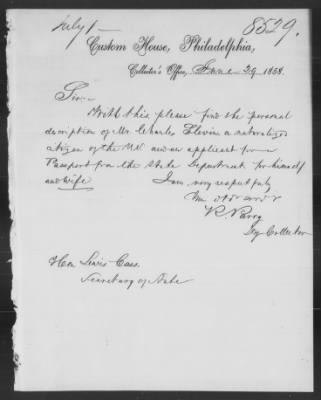 July 1
8529.
Custom House, Philadelphia,
Collector's Office, June 29 1858.
Sir
With this please find the personal
description of Mr Charles a naturalized
citizen of the US now an applicant for a
Passport from the State Department for himself
and wife
I am very respectfully
R. Parry
Dy Collector
Hon Lewis Cass.
Secretary of State